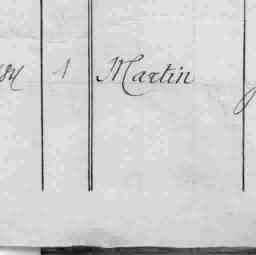 1 Martin